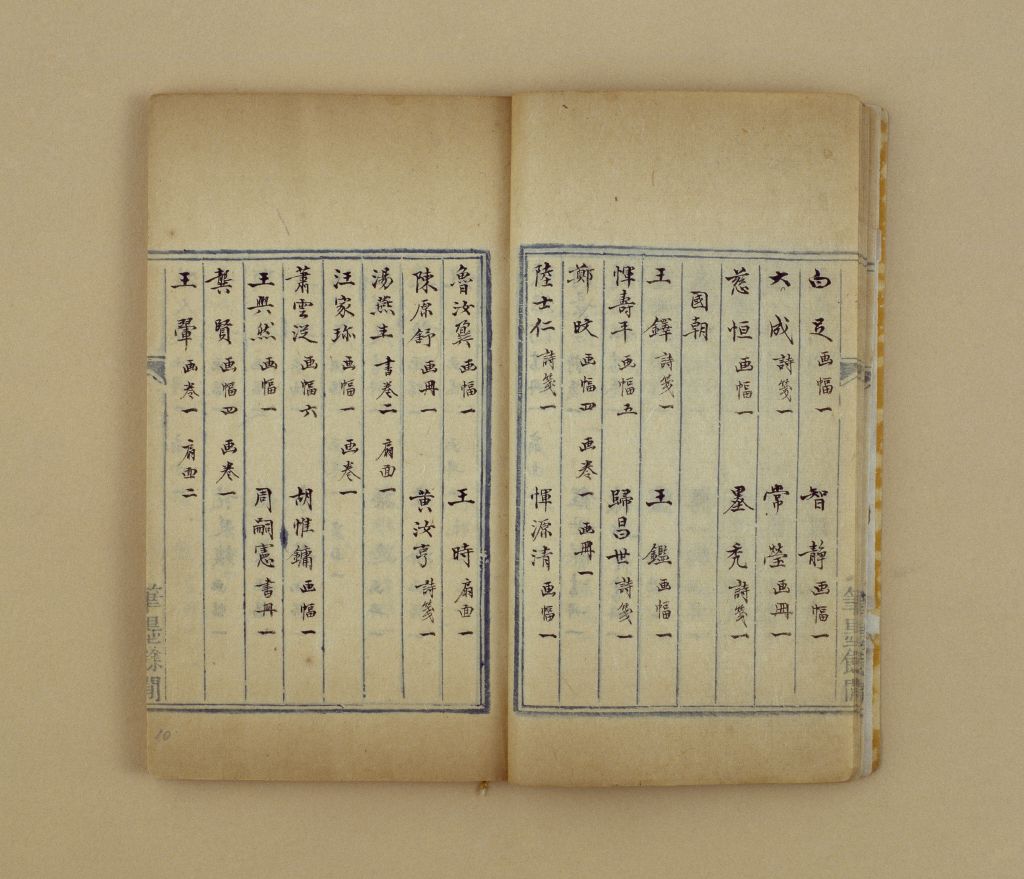 白足 画幅一 智靜 画幅一
大成 詩箋一 常瑩 画冊一
慈恒 画幅一 墨禿 詩箋一
國朝
王鐸 詩箋一 王鑑 画幅一
惲壽平 画幅五 歸昌世 詩箋一
鄭旼 画幅四 画卷一 画冊一
陸士仁 詩箋一 惲源清 画幅一
魯汝 画幅一 王時 扇面一
陳原舒 画冊一 黄汝亨 詩箋一
湯燕生 書卷二 扇面一
汪家珍 画幅一 画卷一
蕭雲從 画幅六 胡惟鏞 画幅一
王與然 画幅一 周嗣憲 書冊一
龔賢 画幅四 画卷一
王翬 画卷一 扇面二
筆墨餘閒
筆墨餘閒
10